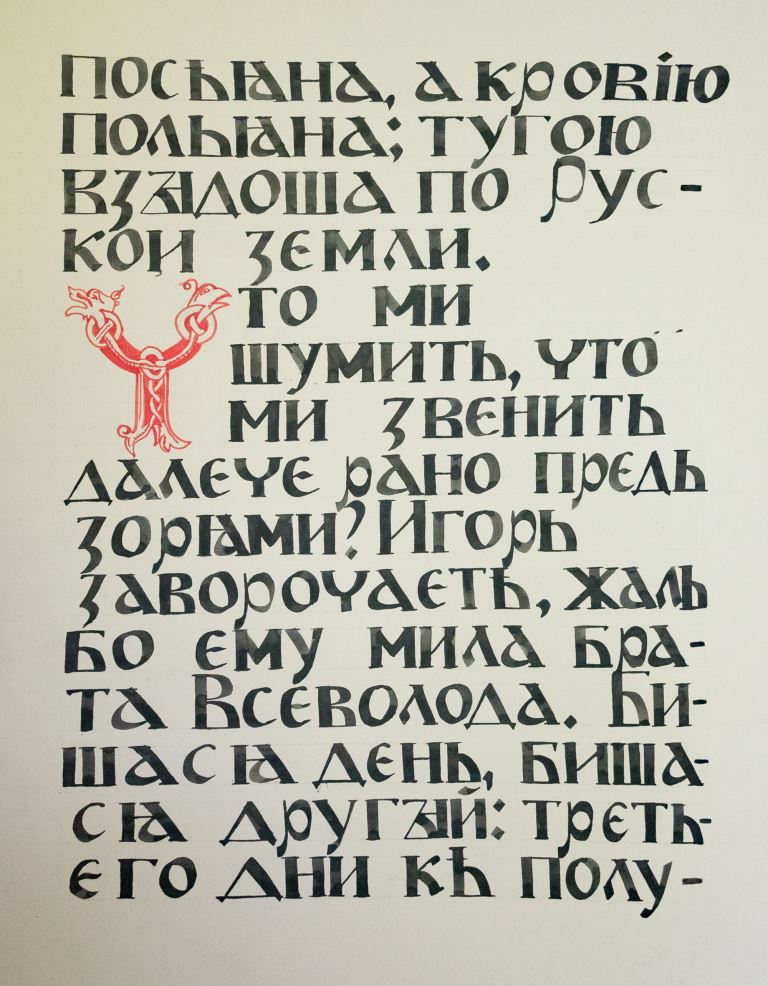 посѣꙗна, а кровію
польꙗна; тугою
взꙑдоша по Рус-
кои земли.
Что ми
шумить, что
ми звенить
далече рано предь
зорꙗми? Игорь
заворочаеть, жаль
бо ему мила бра-
та Всеволода. Би-
шасꙗ день, биша-
сꙗ другꙑй: треть-
его дни къ полу-